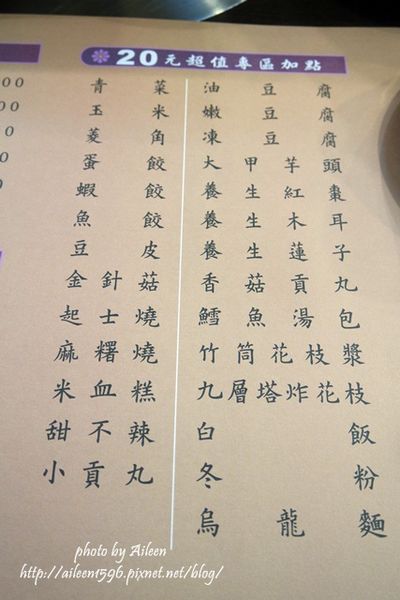 20元超值專區加點
青菜
玉米
菱角
蛋餃
蝦餃
魚餃
豆皮
金針菇
起士燒
麻糬燒
米血糕
甜不辣
小貢丸
油豆腐
嫩豆腐
凍豆腐
大甲芋頭
養生紅棗
養生木耳
養生蓮子
香菇貢丸
鱈魚湯包
竹筒花枝漿
九層塔炸花枝
白飯
冬粉
烏龍麵
photo by Aileen
http://aileen1596.pixnet.net/blog/